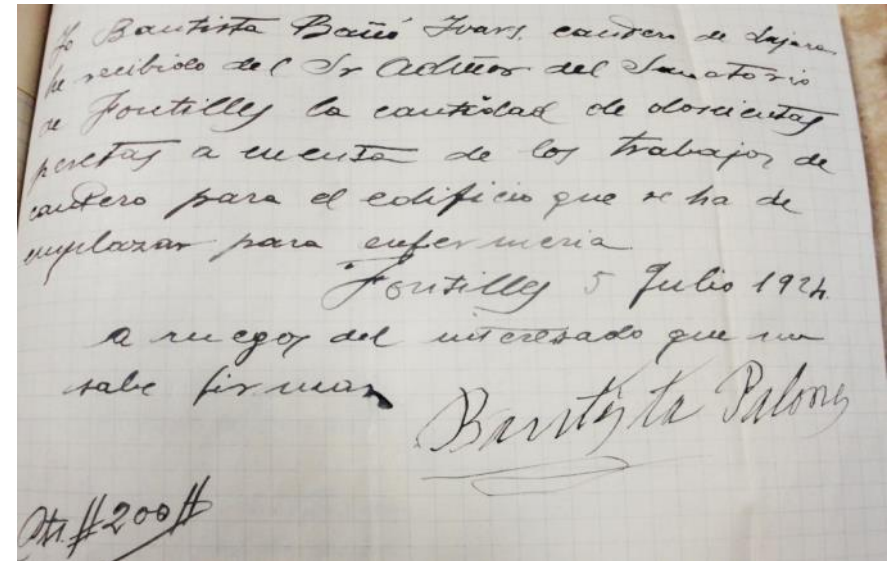 Yo Bautista Bañó Ivars, cantero de
he recibido del Sr Admor del Sanatorio
de Fontilles la cantidad de doscientas
pesetas a cuenta de los trabajos de
cantero para el edificio que se ha de
emplazar para enfermeria
Fontilles 5 Julio 1924.
a ruegos del interesado que no
sabe firmar
Bautista Palomes
Pts. #200#